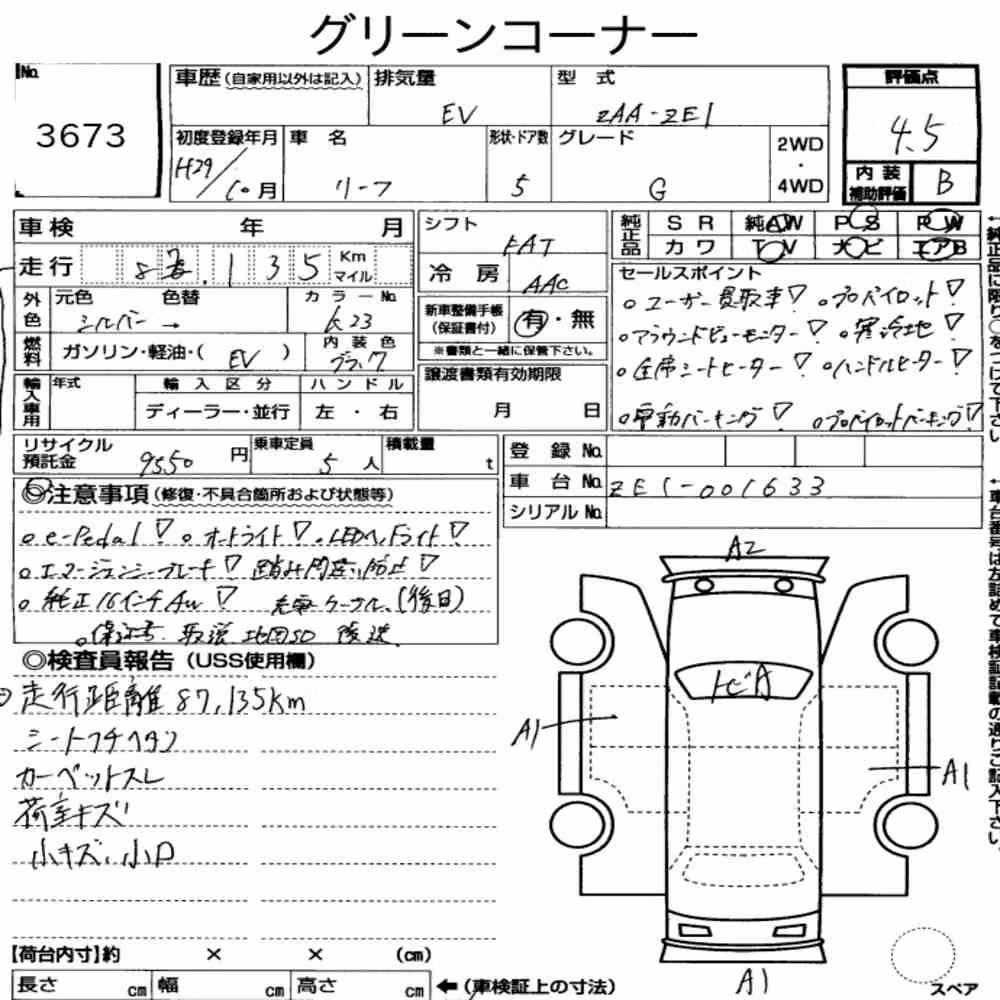 グリーンコーナー
No.
3673
車歴(自家用以外は記入)
排気量
EV
型 式
ZAA-ZE1
評価点
4.5
初度登録年月
H29/10月
車 名
リーフ
形状・ドア数
5
グレード
G
2WD
・
4WD
内 装
補助評価
B
車検 年 月
シフト
FAT
純正品
SR 純AW PS PW
カワ TV ナビ エアB
走行
87.135
Km
マイル
冷 房
AAC
セールスポイント
。ユーザー買取車▽ 。プロパイロット▽
。アラウンドビューモニター▽ 。寒冷地▽
。全席シートヒーター▽ 。ハンドルヒーター▽
。電動パーキング▽ 。プロパイロットパーキング▽
外色
元色 色替
シルバー→
カラーNo.
K23
新車整備手帳
(保証書付)
有・無
※書類と一緒に保管下さい。
燃料
ガソリン・軽油・( EV )
内 装 色
ブラック
輸入車用
年式
輸 入 区 分
ディーラー・並行
ハ ン ド ル
左 ・ 右
譲渡書類有効期限
月 日
リサイクル
預託金
9550円
乗車定員
5人
積載量
t
登 録 No.
車 台 No.
ZE1-001633
シリアル No.
◎注意事項(修復・不具合箇所および状態等)
。e-Pedal▽ 。オートライト▽ 。LEDヘッドライト▽
。エマージェンシーブレーキ▽ 踏み間違い防止▽
。純正16インチAW▽ 充電ケーブル(後日)
。保証書 取説 地図SD 後送
◎検査員報告(USS使用欄)
走行距離87,135km
シートフチヘタリ
カーペットスレ
荷室キズ
小キズ、小凹
A2
トビA
A1
A1
A1
スペア
【荷台内寸】約 × × (cm)
長さ cm 幅 cm 高さ cm
←(車検証上の寸法)
←純正品に限り○をつけて下さい
←車台番号は左詰めで車検証記載の通りご記入下さい。